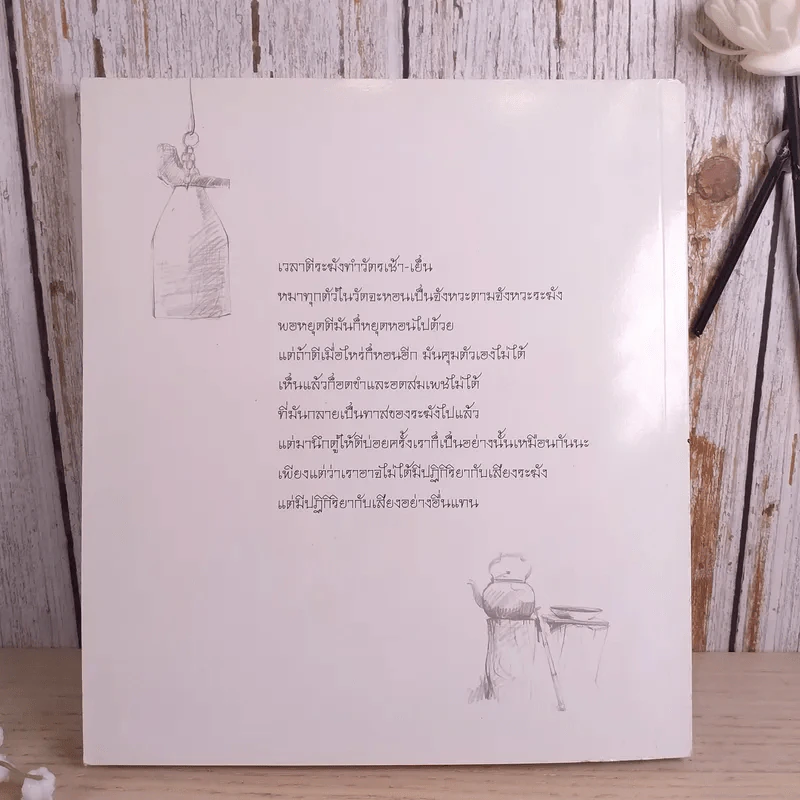 เวลาตีระฆังทำวัตรเช้า-เย็น
หมาทุกตัวในวัดจะหอนเป็นจังหวะตามจังหวะระฆัง
พอหยุดตีมันก็หยุดหอนไปด้วย
แต่ถ้าตีเมื่อไหร่ก็หอนอีก มันคุมตัวเองไม่ได้
เห็นแล้วก็อดขำและอดสมเพชไม่ได้
ที่มันกลายเป็นทาสของระฆังไปแล้ว
แต่มานึกดูให้ดีบ่อยครั้งเราก็เป็นอย่างนั้นเหมือนกันนะ
เพียงแต่ว่าเราอาจไม่ได้มีปฏิกิริยากับเสียงระฆัง
แต่มีปฏิกิริยากับเสียงอย่างอื่นแทน